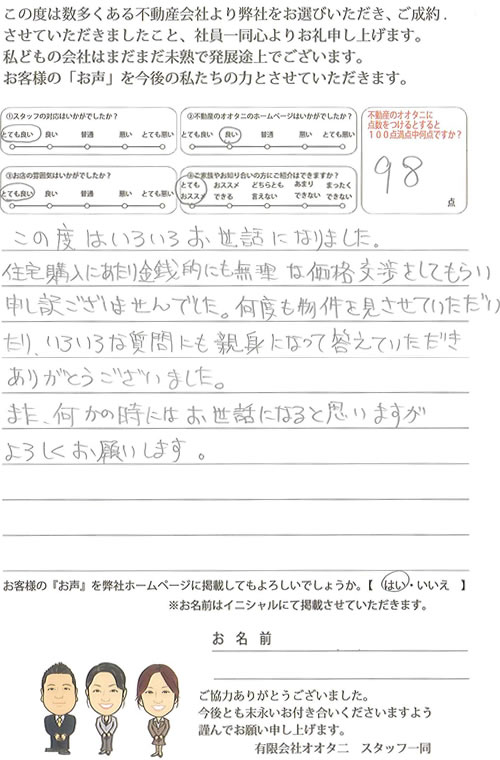 この度は数多くある不動産会社より弊社をお選びいただき、ご成約.
させていただきましたこと、社員一同心よりお礼申し上げます。
私どもの会社はまだまだ未熟で発展途上でございます。
お客様の「お声」を今後の私たちの力とさせていただきます。
①スタッフの対応はいかがでしたか?
とても良い 良い 普通 悪い とても悪い
②不動産のオオタニのホームページはいかがでしたか?
とても良い 良い 普通 悪い とても悪い
不動産のオオタニに
点数をつけるとすると
100点満点中何点ですか?
98
点
③お店の雰囲気はいかがでしたか?
とても良い 良い 普通 悪い とても悪い
④ご家族やお知り合いの方にご紹介はできますか?
とても オススメ どちらとも あまり まったく
オススメ できる 言えない できない できない
この度はいろいろお世話になりました。
住宅購入にあたり金銭的にも無理な価格交渉をしてもらい
申し訳ございませんでした。何度も物件を見させていただい
たり、いろいろな質問にも親身になって答えていただき
ありがとうございました。
また、何かの時にはお世話になると思いますが
よろしくお願いします。
お客様の『お声』を弊社ホームページに掲載してもよろしいでしょうか。【 はい・いいえ 】
※お名前はイニシャルにて掲載させていただきます。
お名前
ご協力ありがとうございました。
今後とも末永いお付き合いくださいますよう
謹んでお願い申し上げます。
有限会社オオタニ スタッフ一同